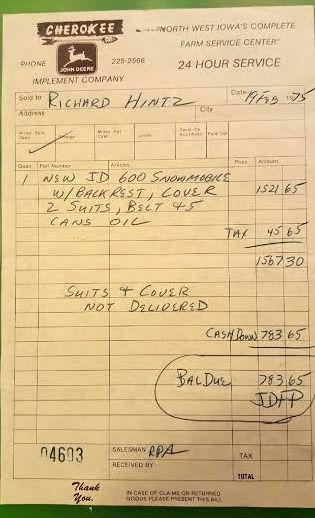 CHEROKEE
"NORTH WEST IOWA'S COMPLETE
FARM SERVICE CENTER"
PHONE JOHN DEERE 225-2566 24 HOUR SERVICE
IMPLEMENT COMPANY
Sold to RICHARD HINTZ Date 19 FEB 1975
Address City
Quan. Part Number Articles Price Amount
1 NEW JD 600 SNOWMOBILE
W/BACKREST, COVER 1521 65
2 SUITS, BELT 45
CANS OIL
TAX 45 65
1567 30
SUITS & COVER
NOT DELIVERED
CASH DOWN 783 65
BAL DUE 783 65
JDFP
04603
SALESMAN RDA TAX
RECEIVED BY
TOTAL
Thank
You.
IN CASE OF CLAIMS OR RETURNED
GOODS PLEASE PRESENT THIS BILL